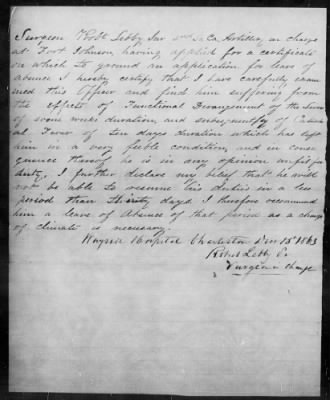 Surgeon Robt Lebby Jnr 2nd So Ca Artillery, in charge
at Fort Johnson, having applied for a certificate
on which to ground an application for leave of
absence I hereby certify that I have carefully exam
ined this Officer and find him suffering from
the effects of Functional Derangement of the Liver
of some weeks duration, and subsequently of
Fever of ten days duration which has left
him in a very feeble condition, and in conse
quence thereof he is in my opinion unfit for
duty, I further declare my belief that he will
not be able to resume his duties in a less
period than thirty days I therefore recommend
him a leave of Absence of that period as a change
of climate is necessary.
Wayside Hospital Charleston 15th 1863
Robert Lebby Sr
Surgeon in Charge